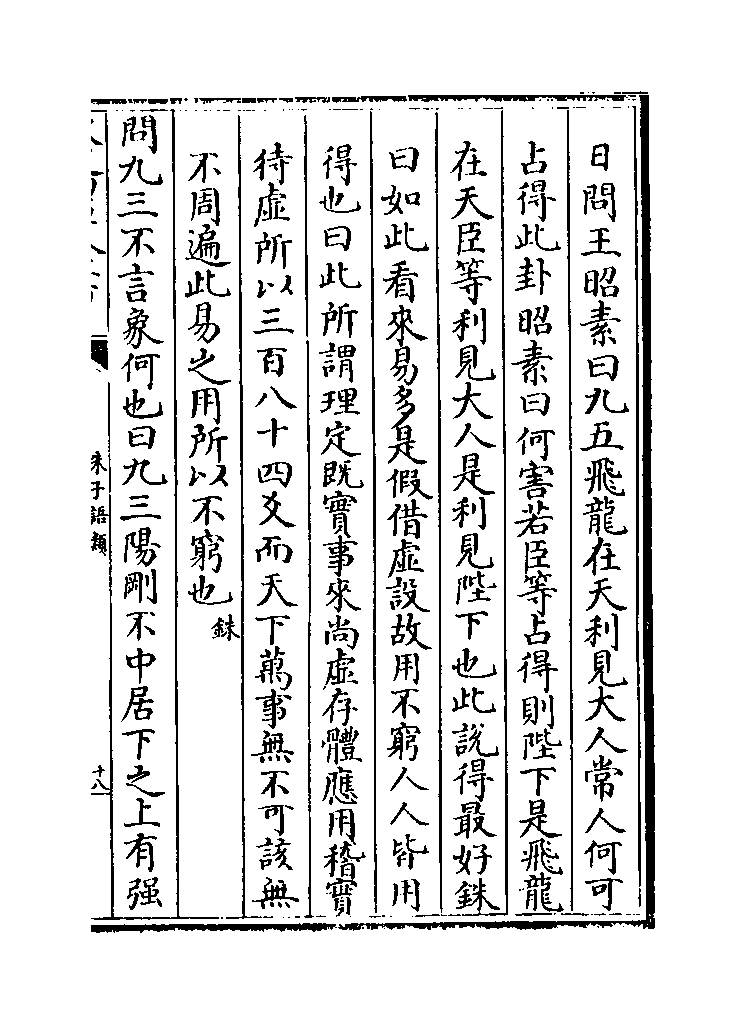 日問王昭素曰九五飛龍在天利見大人常人何可
占得此卦昭素曰何害若臣等占得則陛下是飛龍
在天臣等利見大人是利見陛下也此說得最好銖
曰如此看來易多是假借虛設故用不窮人人皆用
得也曰此所謂理定既實事來尚虛存體應用稽實
待虛所以三百八十四爻而天下萬事無不可該無
不周遍此易之用所以不窮也銖
問九三不言象何也曰九三陽剛不中居下之上有强
朱子語類
十八